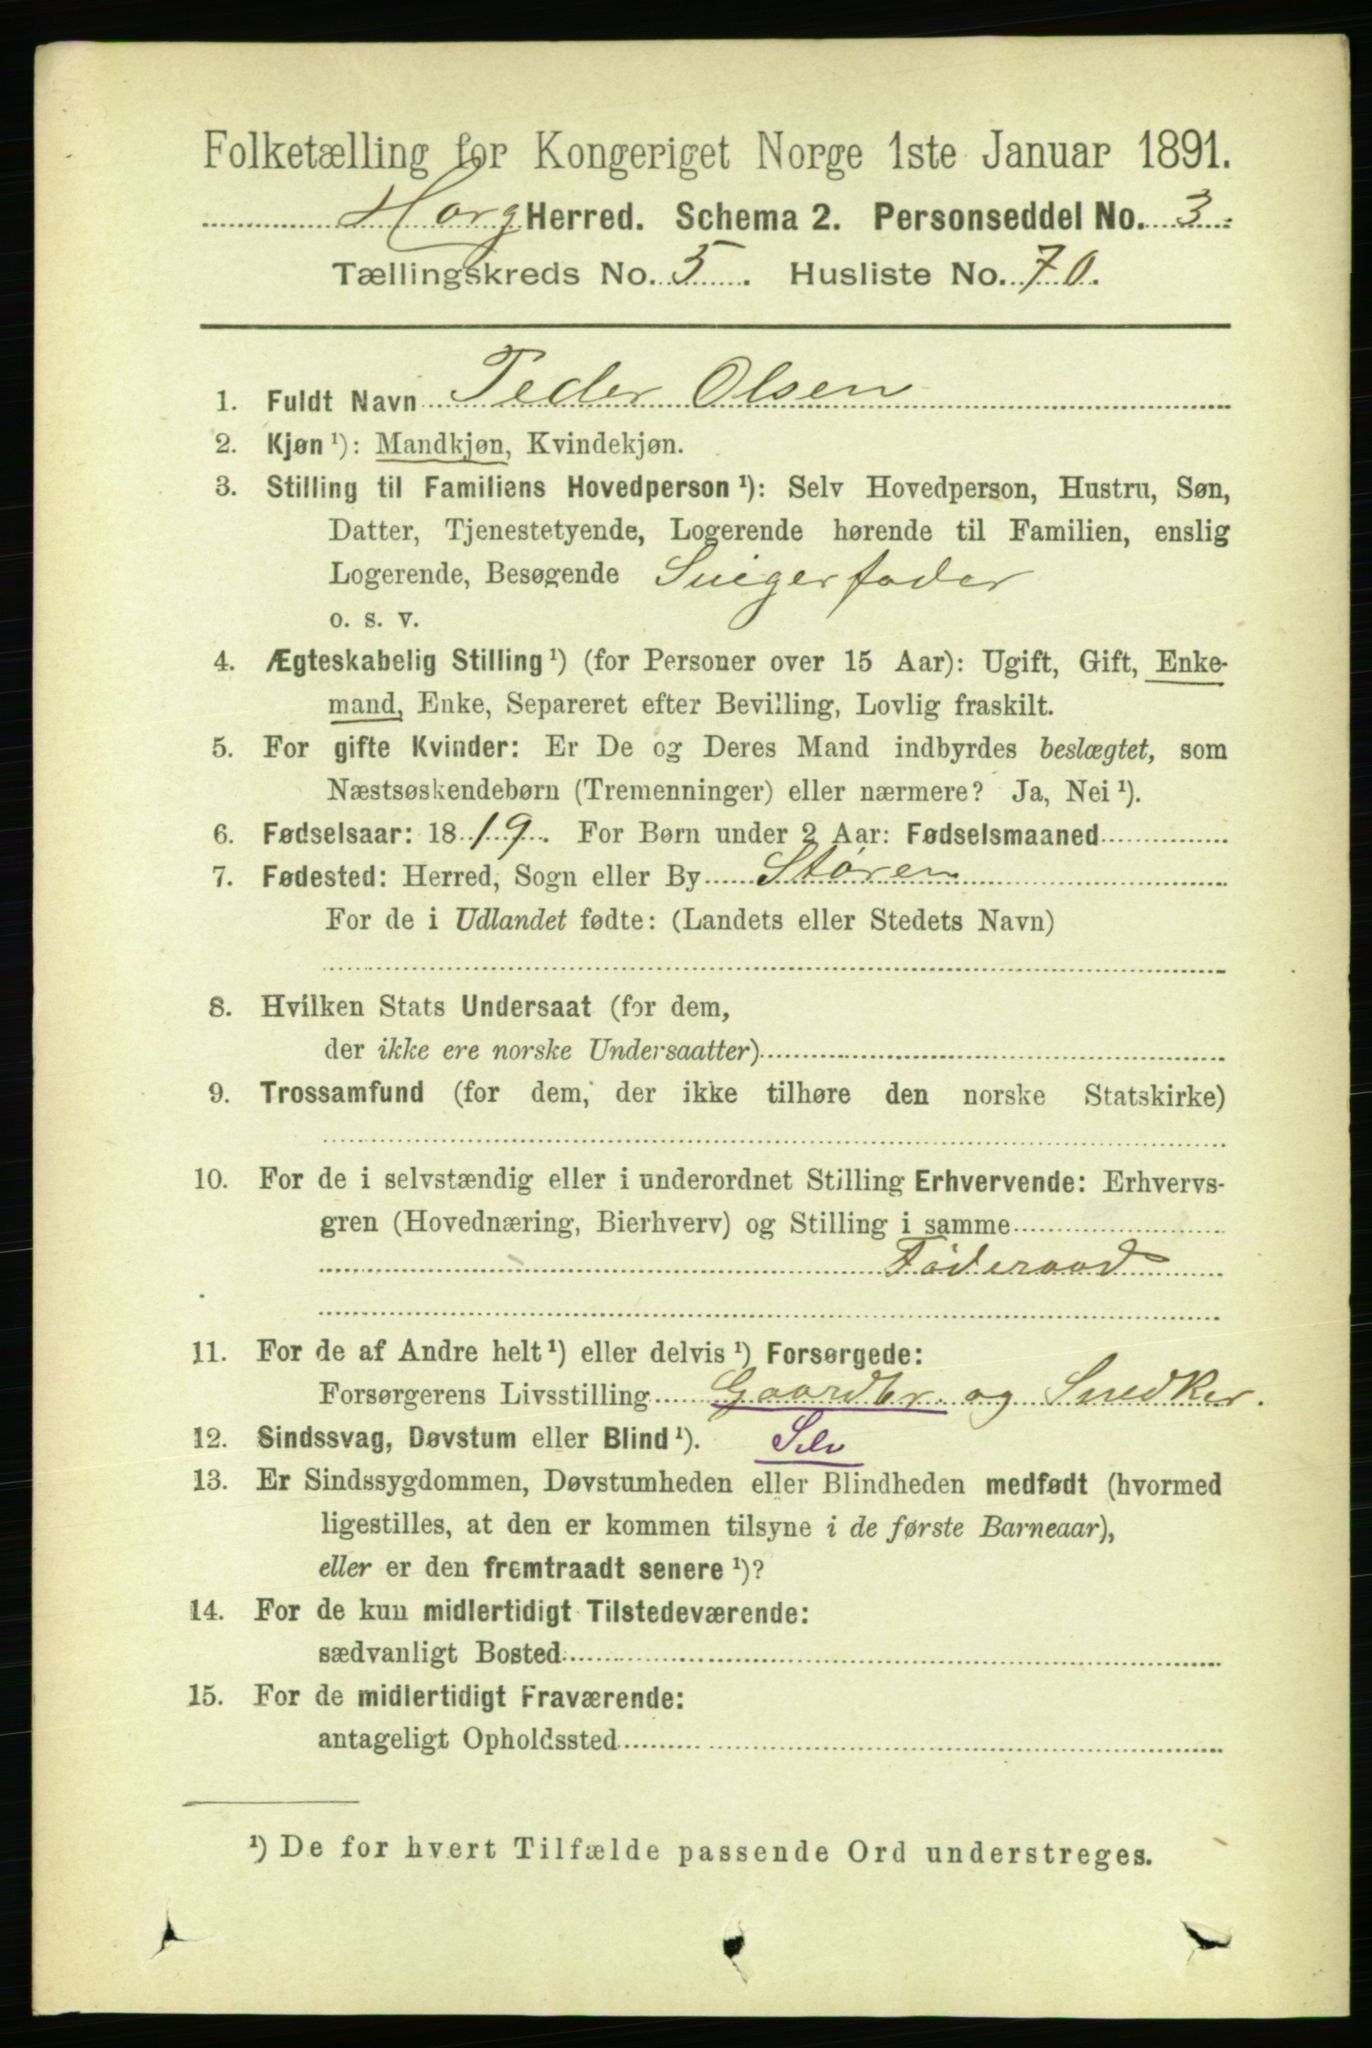 Folketælling for Kongeriget Norge 1ste Januar 1891.
Horg Herred. Schema 2. Personseddel No. 3.
Tællingskreds No. 5. Husliste No. 70.
1. Fuldt Navn Peder Olsen
2. Kjøn ¹): Mandkjøn, Kvindekjøn.
3. Stilling til Familiens Hovedperson ¹): Selv Hovedperson, Hustru, Søn,
Datter, Tjenestetyende, Logerende hørende til Familien, enslig
Logerende, Besøgende Svigerfader
o. s. v.
4. Ægteskabelig Stilling ¹) (for Personer over 15 Aar): Ugift, Gift, Enke-
mand, Enke, Separeret efter Bevilling, Lovlig fraskilt.
5. For gifte Kvinder: Er De og Deres Mand indbyrdes beslægtet, som
Næstsøskendebørn (Tremenninger) eller nærmere? Ja, Nei ¹).
6. Fødselsaar: 1819. For Børn under 2 Aar: Fødselsmaaned
7. Fødested: Herred, Sogn eller By Støren
For de i Udlandet fødte: (Landets eller Stedets Navn)
8. Hvilken Stats Undersaat (for dem,
der ikke ere norske Undersaatter)
9. Trossamfund (for dem, der ikke tilhøre den norske Statskirke)
10. For de i selvstændig eller i underordnet Stilling Erhvervende: Erhvervs-
gren (Hovednæring, Bierhverv) og Stilling i samme
Föderaad
11. For de af Andre helt ¹) eller delvis ¹) Forsørgede:
Forsørgerens Livsstilling Gaardbr. og Snedker.
12. Sindssvag, Døvstum eller Blind ¹). Selv
13. Er Sindssygdommen, Døvstumheden eller Blindheden medfødt (hvormed
ligestilles, at den er kommen tilsyne i de første Barneaar),
eller er den fremtraadt senere ¹)?
14. For de kun midlertidigt Tilstedeværende:
sædvanligt Bosted
15. For de midlertidigt Fraværende:
antageligt Opholdssted
¹) De for hvert Tilfælde passende Ord understreges.